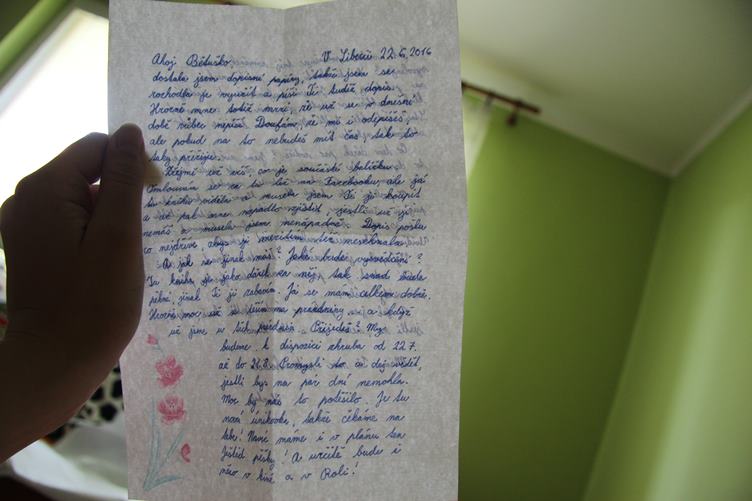 Ahoj Bětuško, V Liberci 22.6.2016
dostala jsem dopisní papíry, takže jsem se
rozhodla je využít a píši Ti tudíž dopis.
Hrozně mne totiž mrzí, že už se v dnešní
době vůbec nepíše. Doufám, že mi i odepíšeš,
ale pokud na to nebudeš mít čas, tak to
taky přežiju.
Zřejmě už víš, co je součástí balíčku.
Omlouvám se za tu lež na Facebooku, ale já
tu knížku viděla a musela jsem Ti ji koupit
a až pak mne napadlo zjistit, jestli už ji
nemáš a musela jsem nenápadně. Dopis posílám
co nejdříve, abys ji mezitím
A jak se jinak máš? Jaké bude vysvědčení?
Tu knihu je jako dárek za něj, tak snad bude
pěkné, jinak Ti ji zabavím. Já se mám celkem dobře.
Hrozně moc už se těším na prázdniny, a když
už jsme u těch prázdnin. Přijedeš? My
budeme k dispozici zhruba od 22.7.
až do Promysli to a dej vědět,
jestli bys na pár dní nemohla.
Moc by nás to potěšilo. Je tu
nová únikovka, takže čekáme na
tebe! Navíc máme i v plánu ten
Ještěd pěšky! A určitě bude i
něco v kině a v Roli!